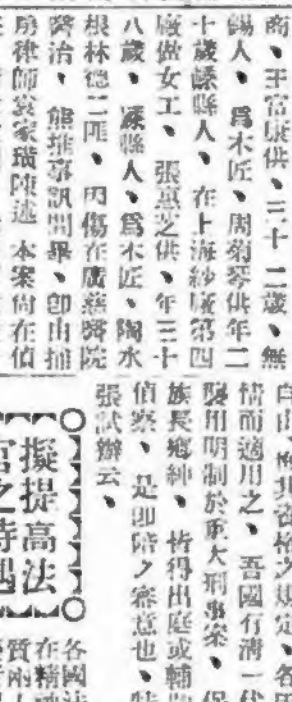 商、王富康供、三十二歲、無
錫人、爲木匠、周菊琴供年二
十歲嵊縣人、在上海紗廠第四
廠做女工、張蕙芝供、年三十
八歲、嵊縣人、爲木匠、陶水
根林德二匪、因傷在廣慈醫院
醫治、熊推事訊問畢、卽由捕
房律師袁家璜陳述、本案尙在偵
自由、之規定、各
情而適用之、吾國有清一代
用明制於重大刑事案、保
族長鄉紳、皆得出庭或輔
偵察、是卽陪審意也、特
張試辦云、
擬提高法
官之待遇
各國法
在精
質